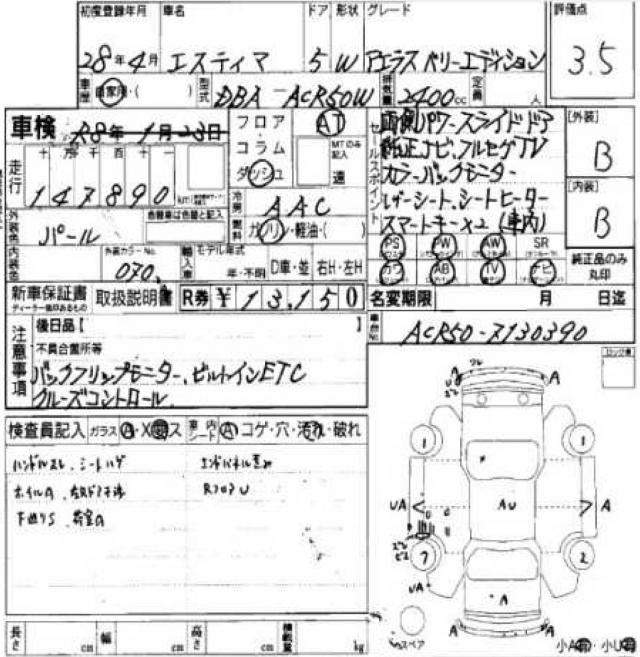 初度登録年月 車名 ドア 形状 グレード 評価点
28年4月 エスティマ 5 W アエラス ベリーエディション 3.5
車歴 自家用・( ) 型式 DBA-ACR50W 排気量 2400cc 定員 人
車検 R8年1月23日 フロア・コラム・ダッシュ AT MTのみ記入 速
走行 十万千百十一
147890 km
冷房 AAC
燃料 ガソリン・軽油・( )
外装色 パール 色替車は色替と記入
内装色 外装カラーNo. 070 輸入車 モデル年式 年・不明 D車・並 右H・左H
セールスポイント
両側パワースライドドア
純正ナビ、フルセグTV
カラーバックモニター
レザーシート、シートヒーター
スマートキー×2(車内)
[外装] B
[内装] B
PS PW AW SR
カワ AB TV ナビ
純正品のみ丸印
新車保証書 取扱説明書 R券 ¥13,150 名変期限 月 日迄
ディーラー捺印あるもの
注意事項 後日品【 】
車台No. ACR50-7130390
不具合箇所等
バックフリップモニター、ビルトインETC
クルーズコントロール
検査員記入 ガラス A・X・ス 車内シート A コゲ・穴・汚れ・破れ
ハンドルスレ、シートハゲ
ホイルA
下廻りS、荷室A
RフロアU
ロック有
A A
1 1
UA AU A
7 2
UA A
A A
スペア
小A 小U
長さ cm 幅 cm 高さ cm 積載量 kg